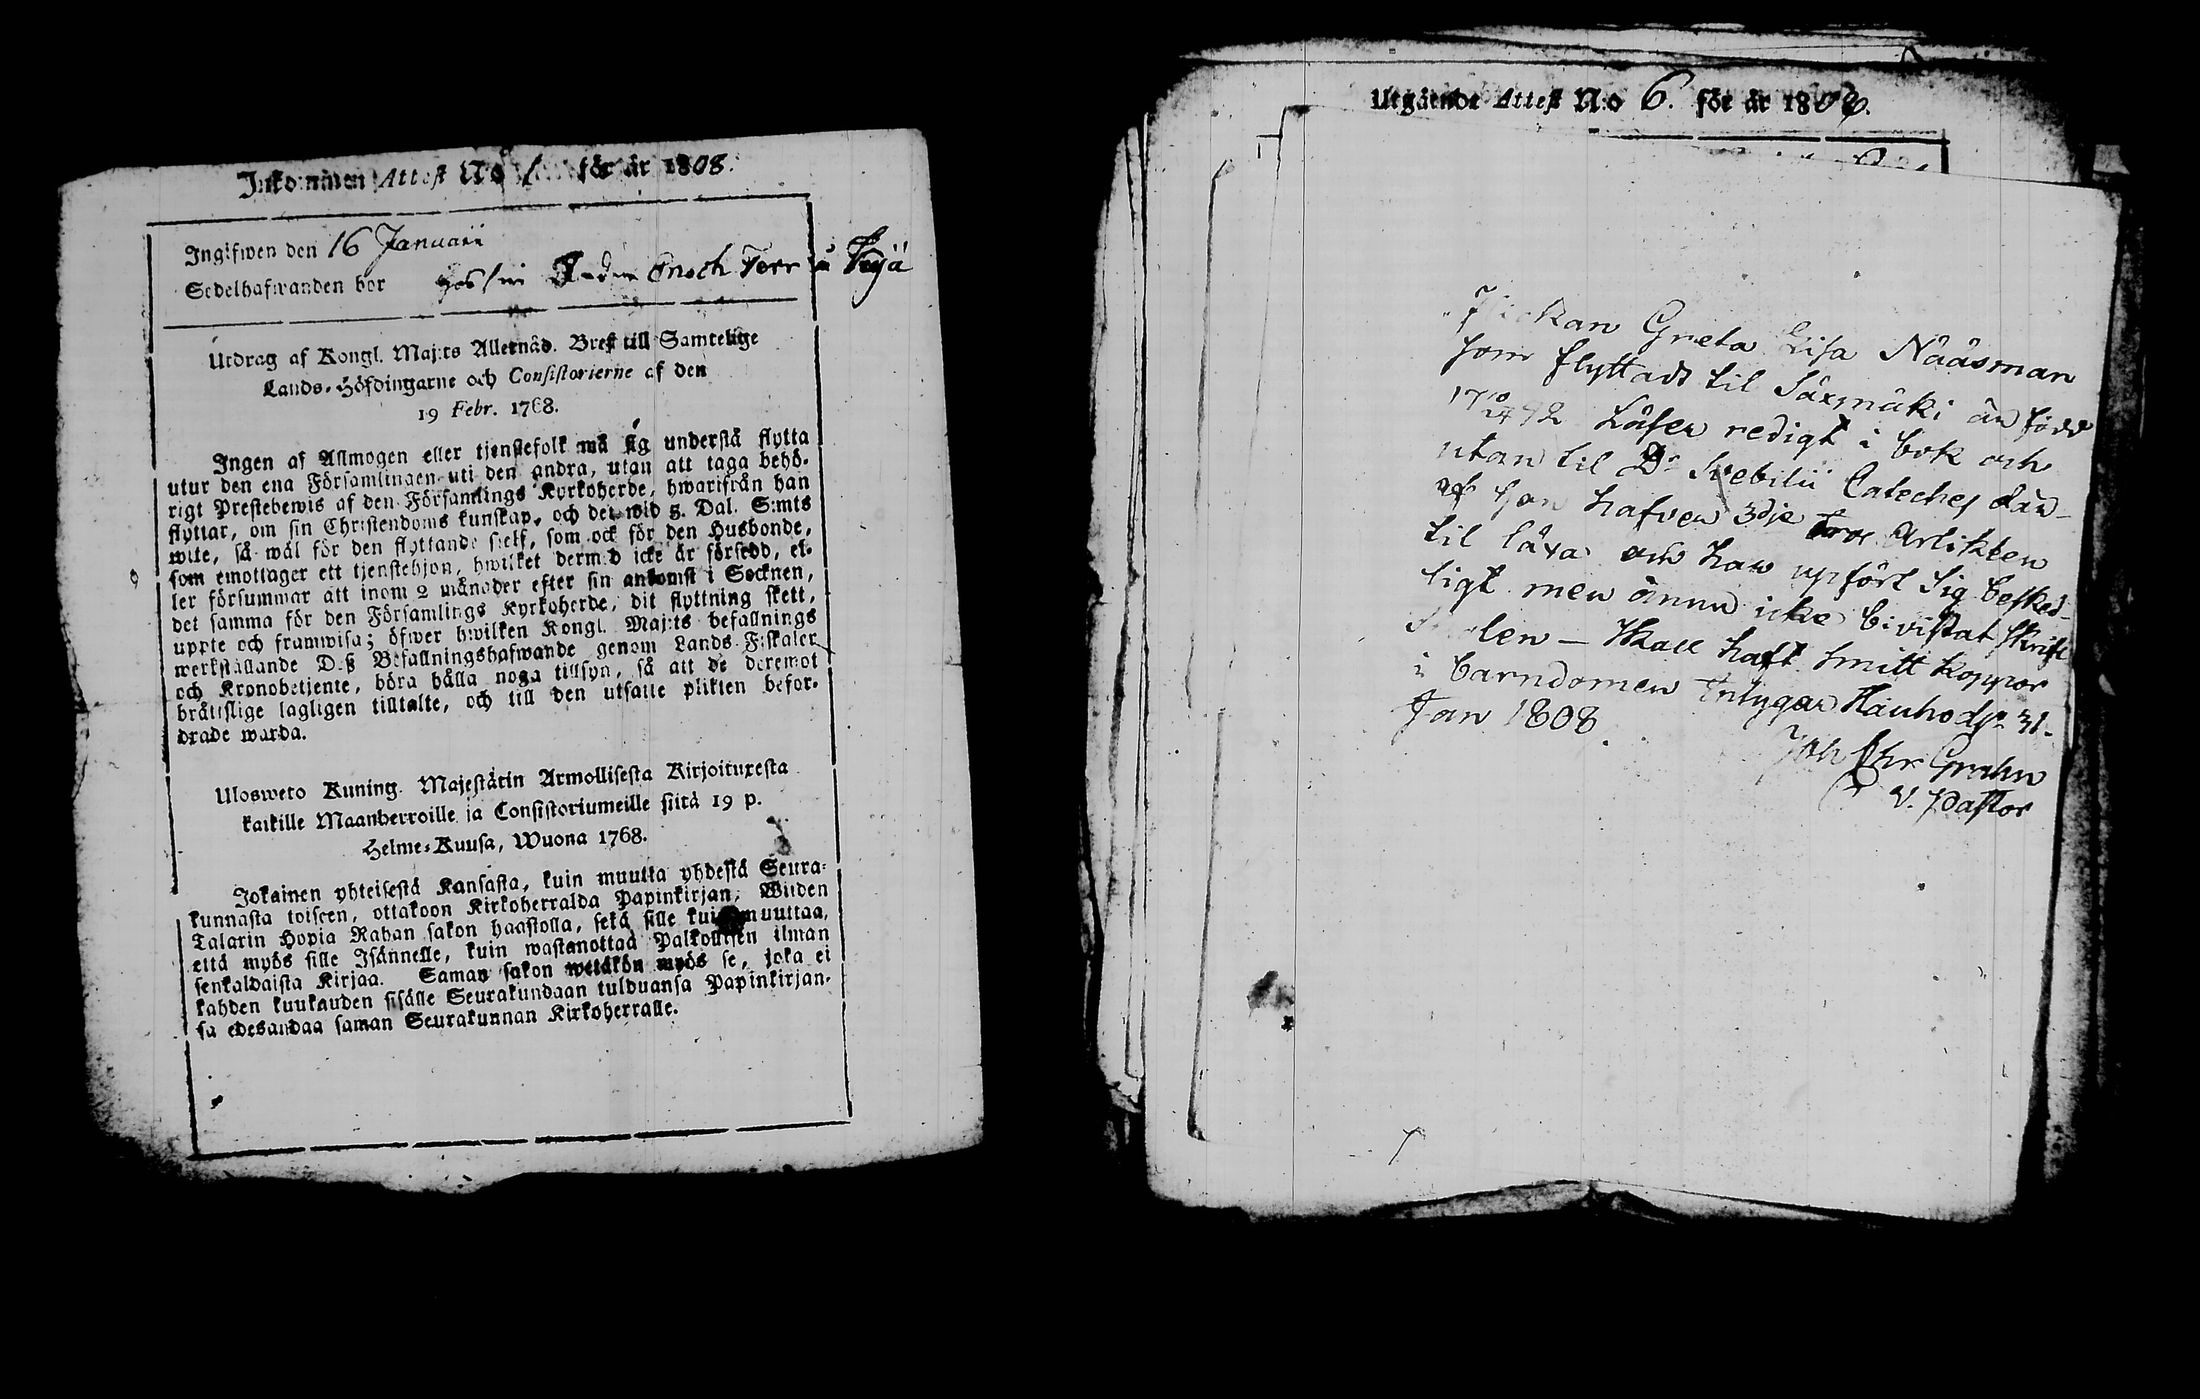 Inkommen Attest No 1 för år 1808.
Ingifwen den 16 Januarii
Sedelhafwanden bor hos sin Enoch á
Utdrag af Kongl. Maj:ts Allernåd. Bref till Samtelige
Lands-Höfdingarne och Consistorierne af den
19 Febr. 1768.
Ingen af Allmogen eller tjenstefolk må sig understå flytta
utur den ena Församlingen uti den andra, utan att taga behö-
rigt Prestebewis af den Församlings Kyrkoherde, hwarifrån han
flyttar, om sin Christendoms kunskap, och det wid 5. Dal. S:mts
wite, så wäl för den flyttande sielf, som ock för den Husbonde,
som emottager ett tjenstehjon, hwilket dermed icke är försedd, el-
ler försummar att inom 2 månader efter sin ankomst i Socknen,
det samma för den Församlings Kyrkoherde, dit flyttning skett,
uppte och framwisa; öfwer hwilken Kongl. Maj:ts befallnings
werkställande D:ß Befallningshafwande genom Lands-Fiskaler
och Kronobetjente, böra hålla noga tillsyn, så att de deremot
bråttslige lagligen tilltalte, och till den utsatte plikten befor-
drade warda.
Ulosweto Kuning. Majestätin Armollisesta Kirjoituxesta
kaikille Maanherroille ja Consistoriumeille siitä 19 p.
Helme-Kuusa, Wuona 1768.
Jokainen yhteisestä Kansasta, kuin muutta yhdestä Seura-
kunnasta toiseen, ottakoon Kirkoherralda Papinkirjan, Wiiden
Talarin Hopia Rahan sakon haastolla, sekä sille kuin muuttaa,
että myös sille Isännelle, kuin wastanottaa Palkollisen ilman
senkaldaista Kirjaa. Saman sakon wetäkön myös se, joka ei
kahden kuukauden sisälle Seurakundaan tulduansa Papinkirjan-
sa edesandaa saman Seurakunnan Kirkoherralle.
Utgående Attest N:o 6. för år 1808.
Flickan Greta Lisa Nääsman
som flyttadt til Säxmäki är född
17 92 Läser redigt i bok och
utan til Dr Svebilii Cateches där-
af hon hafver 3dje Artiklen
til läxa och har upfört sig besked-
ligt men ännu icke bivistat Skrift
Skolen – Skall haft Smitt koppor
i barndomen Intygar Hauho d. 31.
Jan 1808
Joh Chr Grahn
V. Pastor